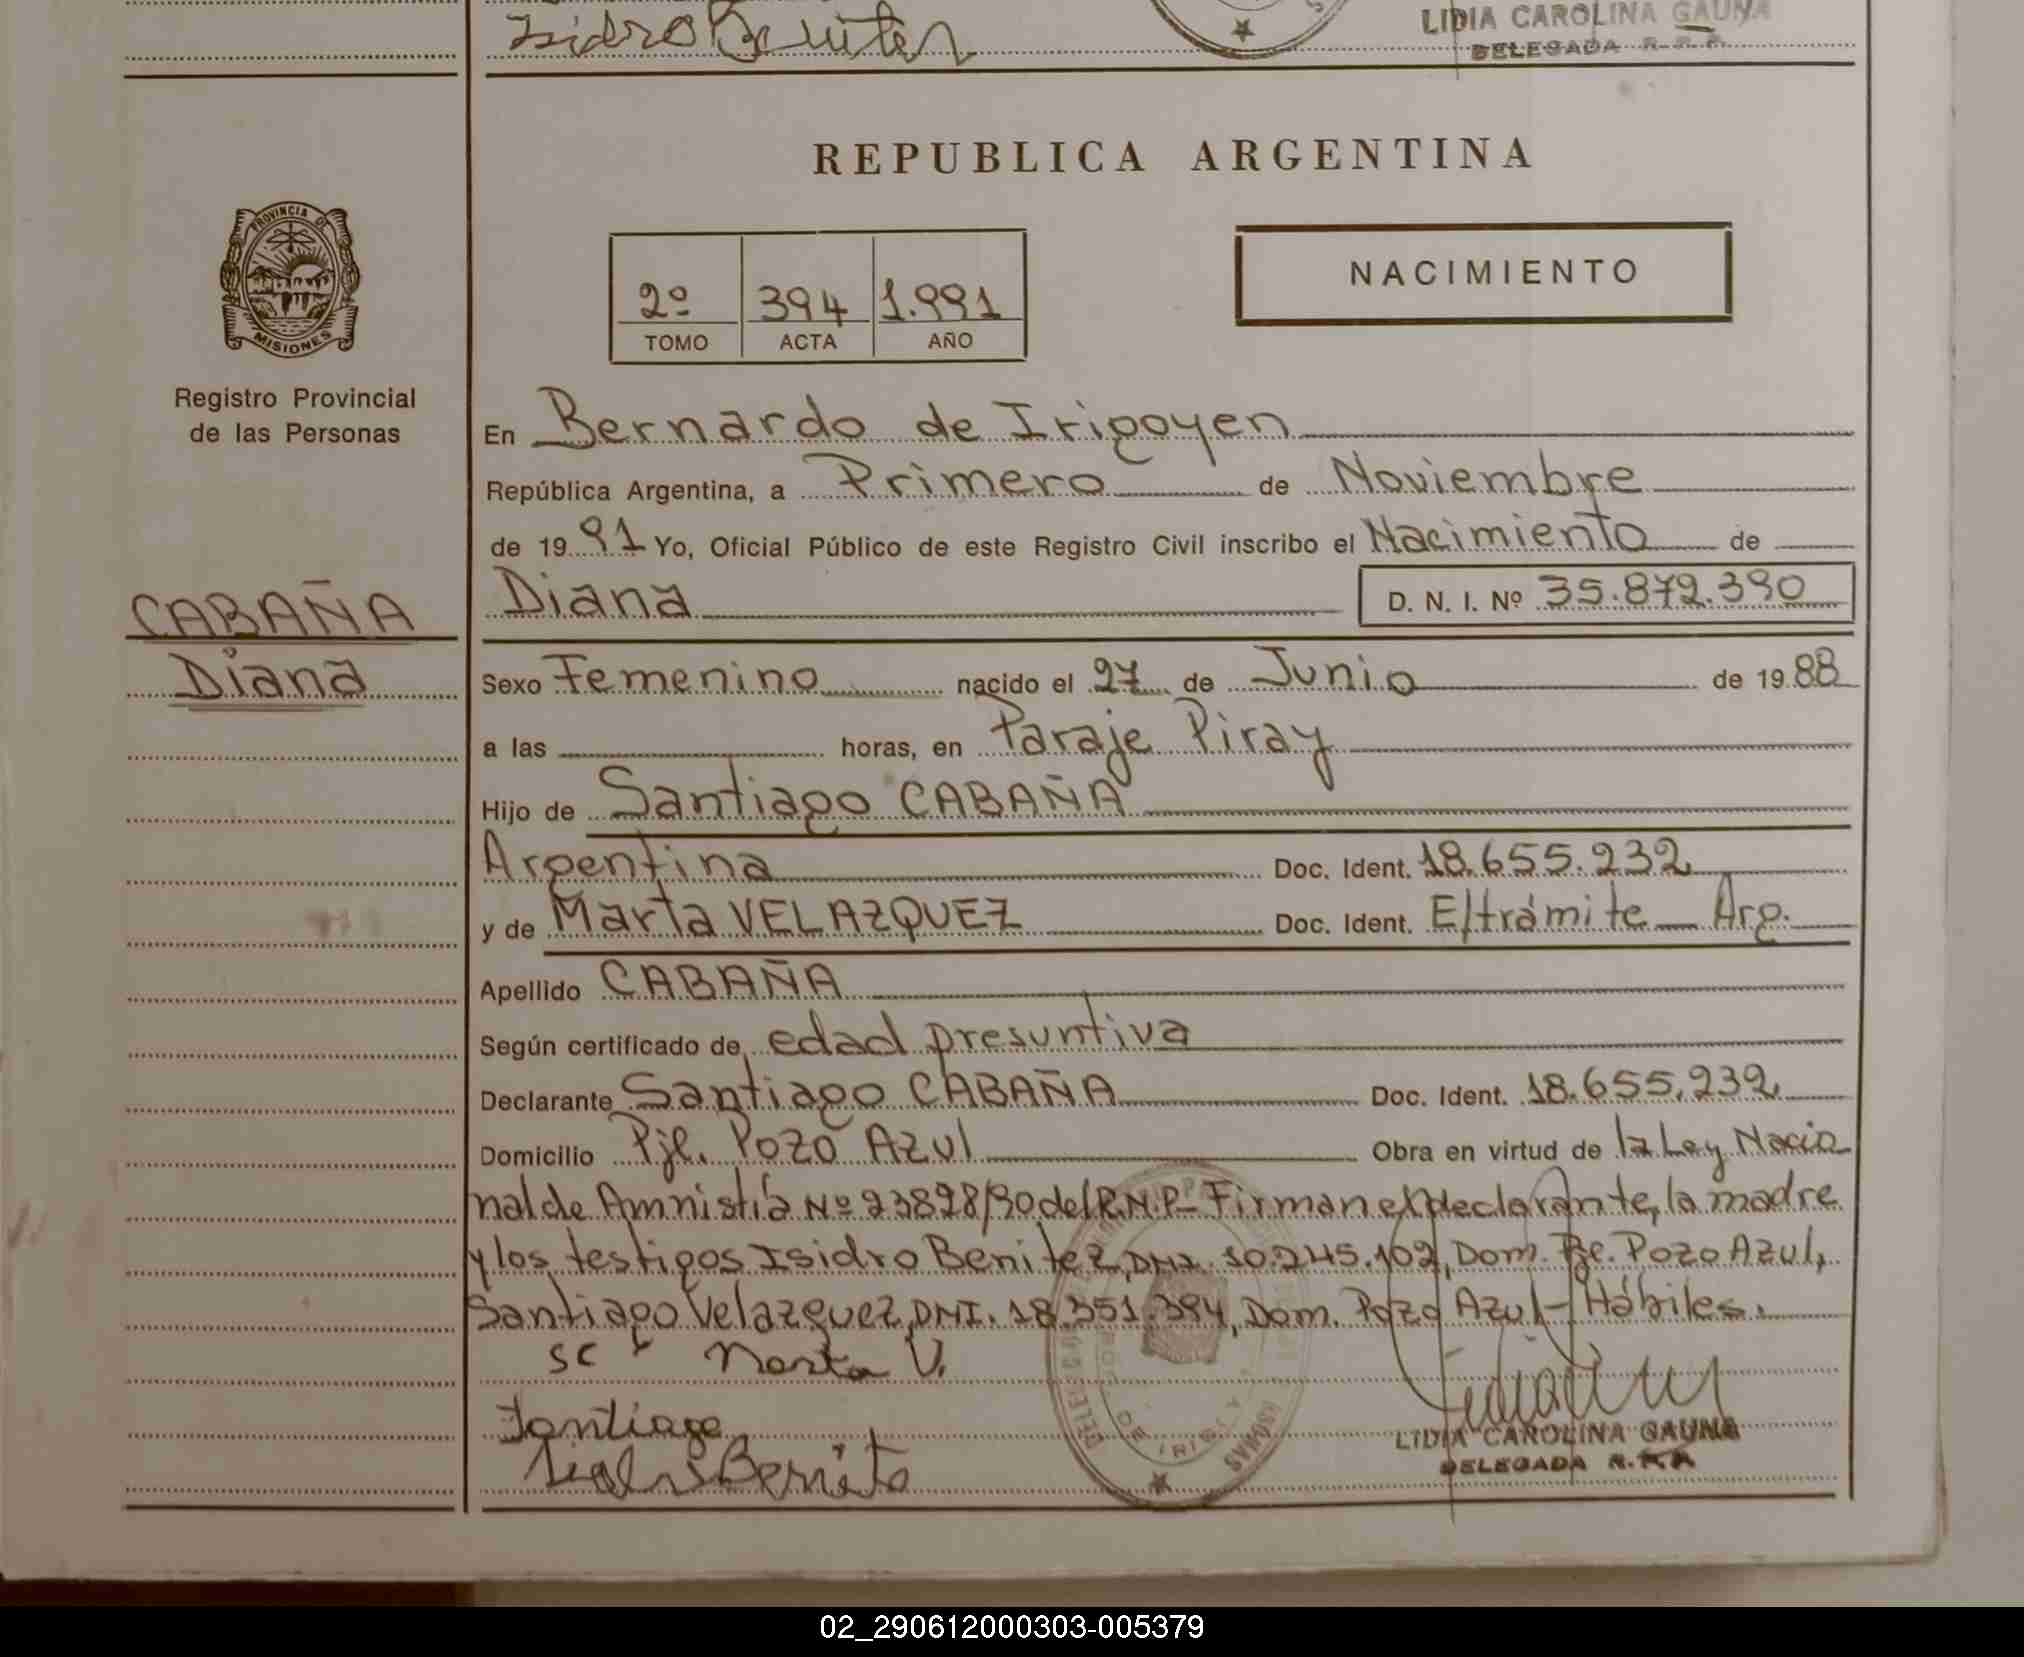 Isidro Benitez
LIDIA CAROLINA GAUNA
DELEGADA R.P.P.
REPUBLICA ARGENTINA
PROVINCIA DE
MISIONES
Registro Provincial
de las Personas
2º 394 1.991
TOMO ACTA AÑO
NACIMIENTO
En Bernardo de Irigoyen
República Argentina, a Primero de Noviembre
de 1991 Yo, Oficial Público de este Registro Civil inscribo el Nacimiento de
Diana D. N. I. Nº 35.872.390
CABAÑA
Diana
Sexo Femenino nacido el 27 de Junio de 1988
a las horas, en Paraje Piray
Hijo de Santiago CABAÑA
Argentina Doc. Ident. 18.655.232
y de Marta VELAZQUEZ Doc. Ident. E/trámite Arg.
Apellido CABAÑA
Según certificado de edad presuntiva
Declarante Santiago CABAÑA Doc. Ident. 18.655.232
Domicilio Pje. Pozo Azul Obra en virtud de la Ley Nacio
nal de Amnistía Nº 23828/90 del R.N.P- Firman el declarante, la madre
y los testigos Isidro Benitez, DNI. 10.245.102, Dom. Pje. Pozo Azul,
Santiago Velazquez, DNI. 18.351.394, Dom. Pozo Azul- Hábiles.
SC Marta V.
Santiago
Isidro Benitez
LIDIA CAROLINA GAUNA
DELEGADA R.P.P.
02_290612000303-005379